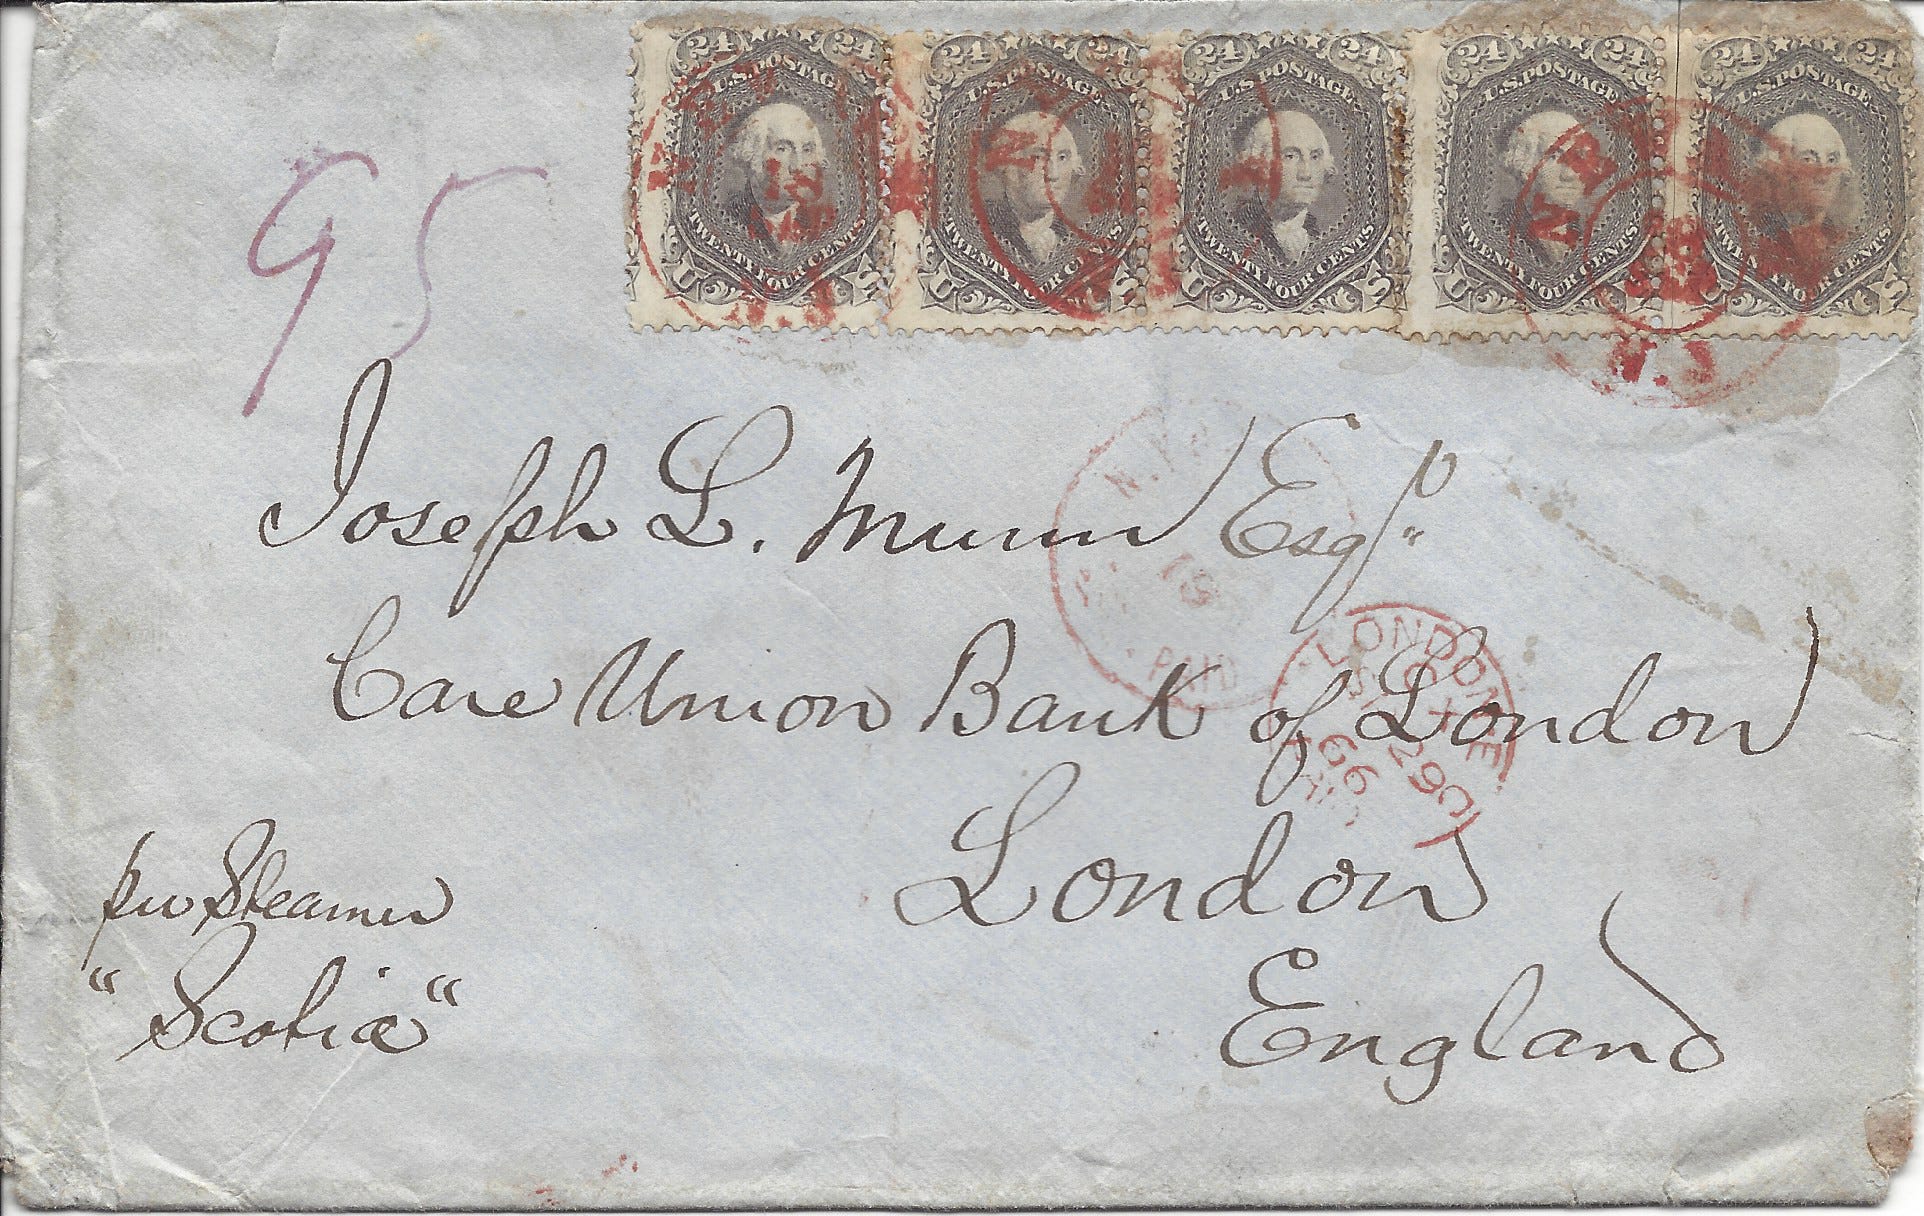 24 24 24 24 24 24 24 24 24 24
U.S. POSTAGE U.S. POSTAGE U.S. POSTAGE U.S. POSTAGE U.S. POSTAGE
TWENTY FOUR CENTS TWENTY FOUR CENTS TWENTY FOUR CENTS TWENTY FOUR CENTS TWENTY FOUR CENTS
U S U S U S U S
95
Joseph L. Munn Esqr
PAID
Care Union Bank of London
LONDON
66
London
England
per Steamer
"Scotia"